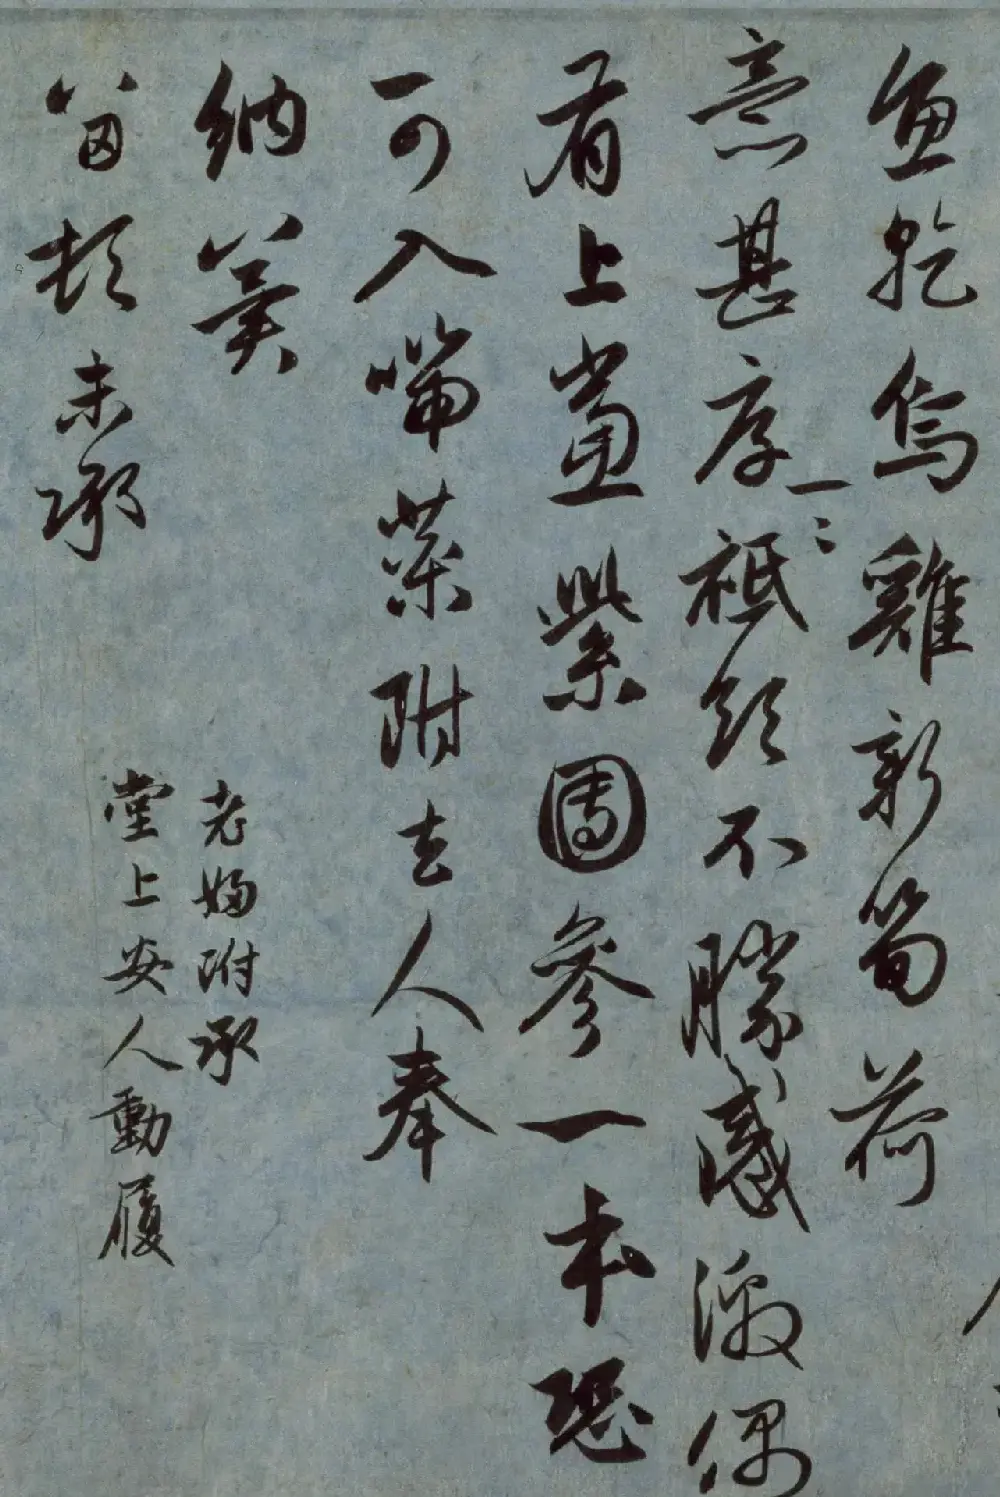 魚乾烏雞新筍荷
意甚厚一一祗領不勝感激偶
有上黨紫團參一本恐
可入藥附去人奉
納冀
留頓未承
老婦附承
堂上安人動履